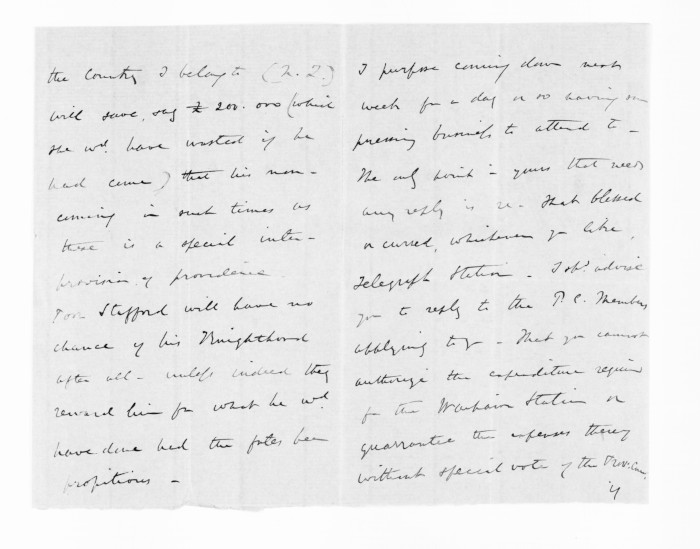 the Country I belong to (N.Z.)
will save, say £ 200.000 (which
she wd. have wasted if he
had come) that his non-
coming in such times as
these is a special inter-
provision of providence.
Poor Stafford will have no
chance of his Knighthood
after all - unless indeed they
reward him for what he wd.
have done had the fates been
propitious -
I purpose coming down next
week for a day or so having some
pressing business to attend to -
The only point in yours that needs
any reply is re. that blessed
or cursed, whichever you like,
Telegraph Station - I shd. advise
you to reply to the P.C. Members
applying to you - that you cannot
authorize the expenditure required
for the Station or
guarrantee the expenses thereof
without special vote of the Prov. Coun.